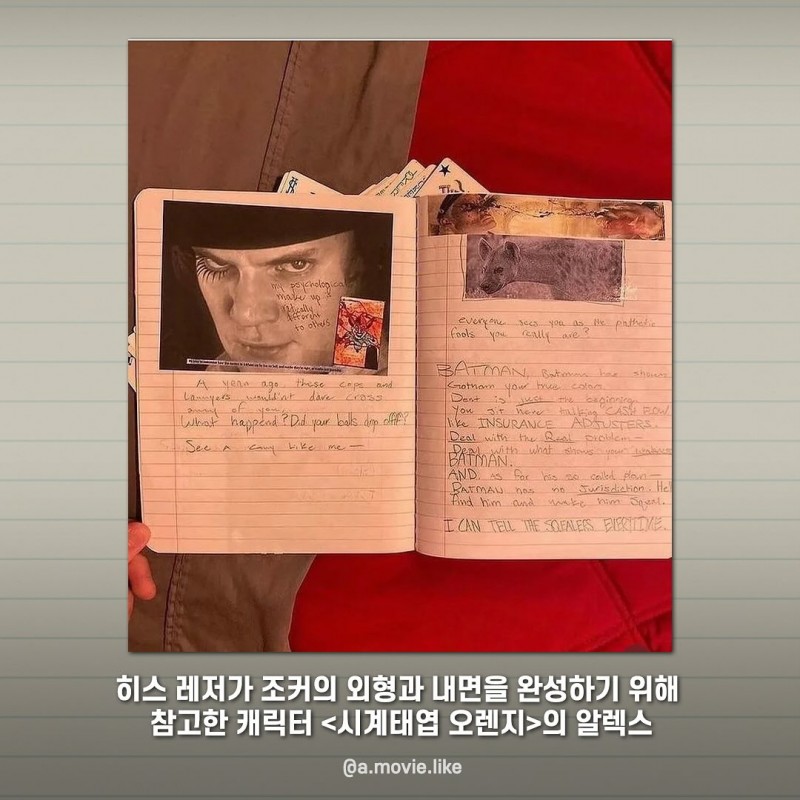 my psychological
make up is
radically
different
to others
A year ago these cops and
Lawyers wouldn't dare cross
any of you,
What happend? Did your balls drop off?
See a guy like me —
everyone sees you as the pathetic
fools you really are?
BATMAN, Batman has shown
Gotham your true colors
Dent is just the beginning
You sit here talking CASH FLOW
like INSURANCE ADJUSTERS.
Deal with the Real problem —
Deal with what shows your
BATMAN.
AND as for his so called plan —
BATMAN has no Jurisdiction. He'll
find him and make him Squeal.
I CAN TELL THE SQUEALERS EVERYTIME.
히스 레저가 조커의 외형과 내면을 완성하기 위해
참고한 캐릭터 <시계태엽 오렌지>의 알렉스
@a.movie.like